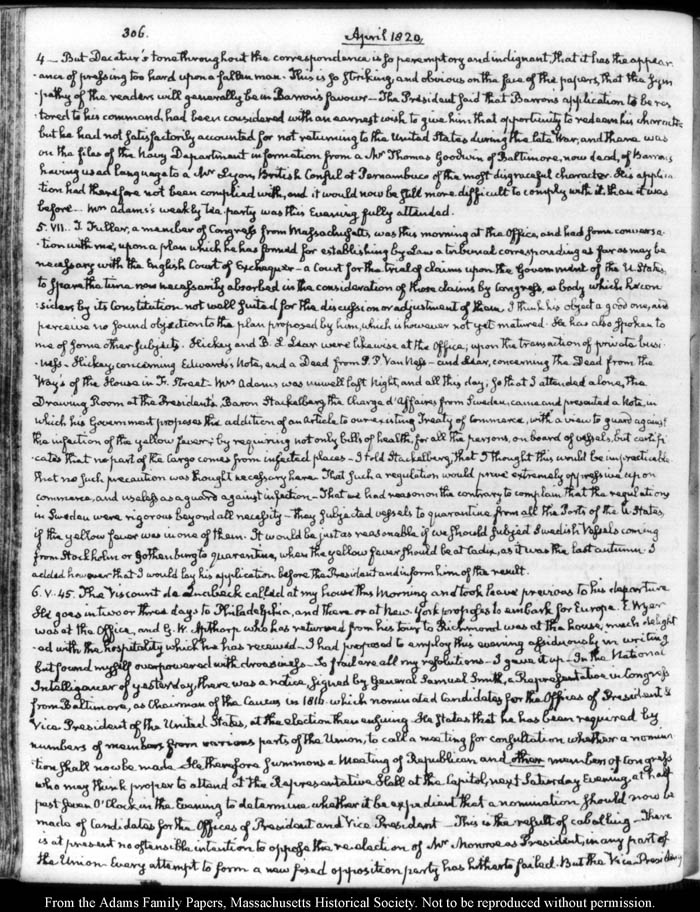 306.
April 1820.
4 — But Decatur's tone throughout the correspondence is so peremptory and indignant, that it has the appear-
-ance of pressing too hard upon a fallen man. This is so striking, and obvious on the face of the papers, that the Sym-
-pathy of the readers will generally be in Barron's favour — The President said that Barron's application to be res-
-tored to his command, had been considered with an earnest wish to give him that opportunity to redeem his character
but he had not satisfactorily accounted for not returning to the United States during the late War, and there was
on the files of the Navy Department information from a Mr Thomas Goodwin of Baltimore, now dead, of Barron's
having used language to a Mr Lyon, British Consul at Pernambuco of the most disgraceful character. His applica-
tion had therefore not been complied with, and it would now be still more difficult to comply with it than it was
before — Mrs Adams's weekly tea party was this Evening fully attended.
5. VII. T. Fuller, a member of Congress from Massachusetts, was this morning at the Office, and had some conversa-
-tion with me, upon a plan which he has formed for establishing by Law a tribunal corresponding as far as may be
necessary with the English Court of Exchequer — a Court for the trial of claims upon the Government of the U. States,
to spare the time now necessarily absorbed in the consideration of those claims by Congress, a body which he con-
-siders by its Constitution not well suited for the discussion or adjustment of them. I think his object a good one, and
perceive no sound objection to the plan proposed by him, which is however not yet matured. He has also spoken to
me of some other subjects. Hickey and B. L. Lear were likewise at the Office, upon the transaction of private busi-
-ness — Hickey, concerning Edwards's Note, and a Deed from J. P. Van Ness — and Lear, concerning the Deed from the
Way's of the House in F. Street. Mrs Adams was unwell last Night, and all this day; so that I attended alone, the
Drawing Room at the President's. Baron Stackelberg the Chargé d'Affaires from Sweden, came and presented a Note, in
which his Government proposes the addition of an Article to our existing Treaty of Commerce, with a view to guard against
the infection of the yellow fever; by requiring not only bills of health, for all the persons on board of vessels, but certifi-
cates that no part of the Cargo comes from infected places — I told Stackelberg, that I thought this would be impracticable
That no such precaution was thought necessary here. That such a regulation would prove extremely oppressive upon
commerce, and useless as a guard against infection — That we had reason on the contrary to complain that the regulations
in Sweden were rigorous beyond all necessity — they subjected vessels to quarantine from all the Ports of the U. States,
if the yellow fever was in one of them. It would be just as reasonable if we should subject Swedish Vessels coming
from Stockholm or Gothenburg to quarantine, when the yellow fever should be at Cadiz, as it was the last autumn. I
added however that I would lay his application before the President and inform him of the result.
6. V. 45. The Viscount de called at my house this Morning and took leave previous to his departure
He goes in two or three days to Philadelphia, and there or at New York proposes to embark for Europe. E. Wyer
was at the Office, and G. H. Apthorp who has returned from his tour to Richmond was at the house, much delight-
-ed with the hospitality which he has received — I had proposed to employ this evening assiduously in writing
but found myself overpowered with drowsiness — So frail are all my resolutions — I gave it up — In the National
Intelligencer of yesterday, there was a notice, signed by General Samuel Smith, a Representative in Congress
from Baltimore, as Chairman of the Caucus in 1816 which nominated Candidates for the Offices of President &
Vice President of the United States, at the election then ensuing. He states that he has been required by
numbers of members from various parts of the Union, to call a meeting for consultation whether a nomina-
-tion shall now be made — He therefore summons a Meeting of Republican and other members of Congress
who may think proper to attend at the Representative Hall at the Capitol, next Saturday Evening, at half
past Seven O'Clock in the Evening to determine whether it be expedient that a nomination should now be
made of Candidates for the Offices of President and Vice President — This is the result of caballing — There
is at present no ostensible intention to oppose the re-election of Mr Monroe as President, in any part of
the Union. Every attempt to form a new opposition party has hitherto failed. But the Vice-Presidency
From the Adams Family Papers, Massachusetts Historical Society. Not to be reproduced without permission.